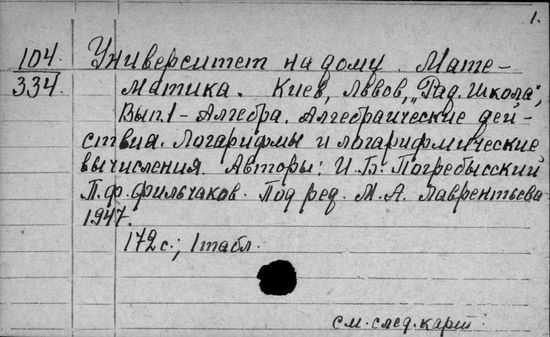 1.
104. Университет на дому. Мате-
334. матика. Киев, Львов, „Рад. Школа“,
Вып. 1 - Алгебра. Алгебраические дей-
ствия. Логарифмы и логарифмические
вычисления. Авторы: И.Б. Погребысский
П.Ф. Фильчаков. Под ред. М.А. Лаврентьева
1947.
172 с.; 1 табл.
см. след. карт.